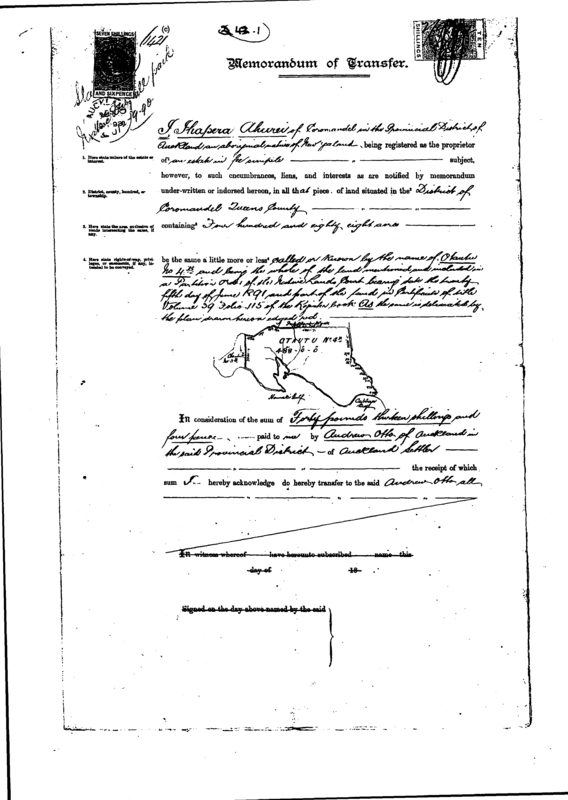 (c)
1421
SEVEN SHILLINGS
AND SIXPENCE
SHILLINGS
TEN
Memorandum of Transfer.
I Ihapera Akurei of Coromandel in the Provincial District of
Auckland an aboriginal native of New Zealand, being registered as the proprietor
1. Here state nature of the estate or interest.
of an estate in fee simple subject,
however, to such encumbrances, liens, and interests as are notified by memorandum
2. District, county, hundred, or township.
under-written or indorsed hereon, in all that piece of land situated in the District of
Coromandel Queens County
3. Here state the area, exclusive of roads intersecting the same, if any.
containing Four hundred and eighty eight acres
4. Here state rights-of-way, privileges, or easements, if any, intended to be conveyed.
be the same a little more or less called or known by the name of Otautu
No 4B and being the whole of the land mentioned and included in
a Partition Order of the Native Land Court bearing date the twenty
fifth day of June 1891 and part of the land in Certificate of title
Volume 39 Folio 115 of the Register book As the same is delineated by
the plan drawn hereon edged red
OTAUTU No 4B
488 - 0 - 0
In consideration of the sum of Forty pounds thirteen shillings and
four pence paid to me by Andrew Otto of Auckland in
the said Provincial District of Auckland Settler
the receipt of which
sum I hereby acknowledge do hereby transfer to the said Andrew Otto all
In witness whereof have hereunto subscribed name this
day of 18
Signed on the day above named by the said